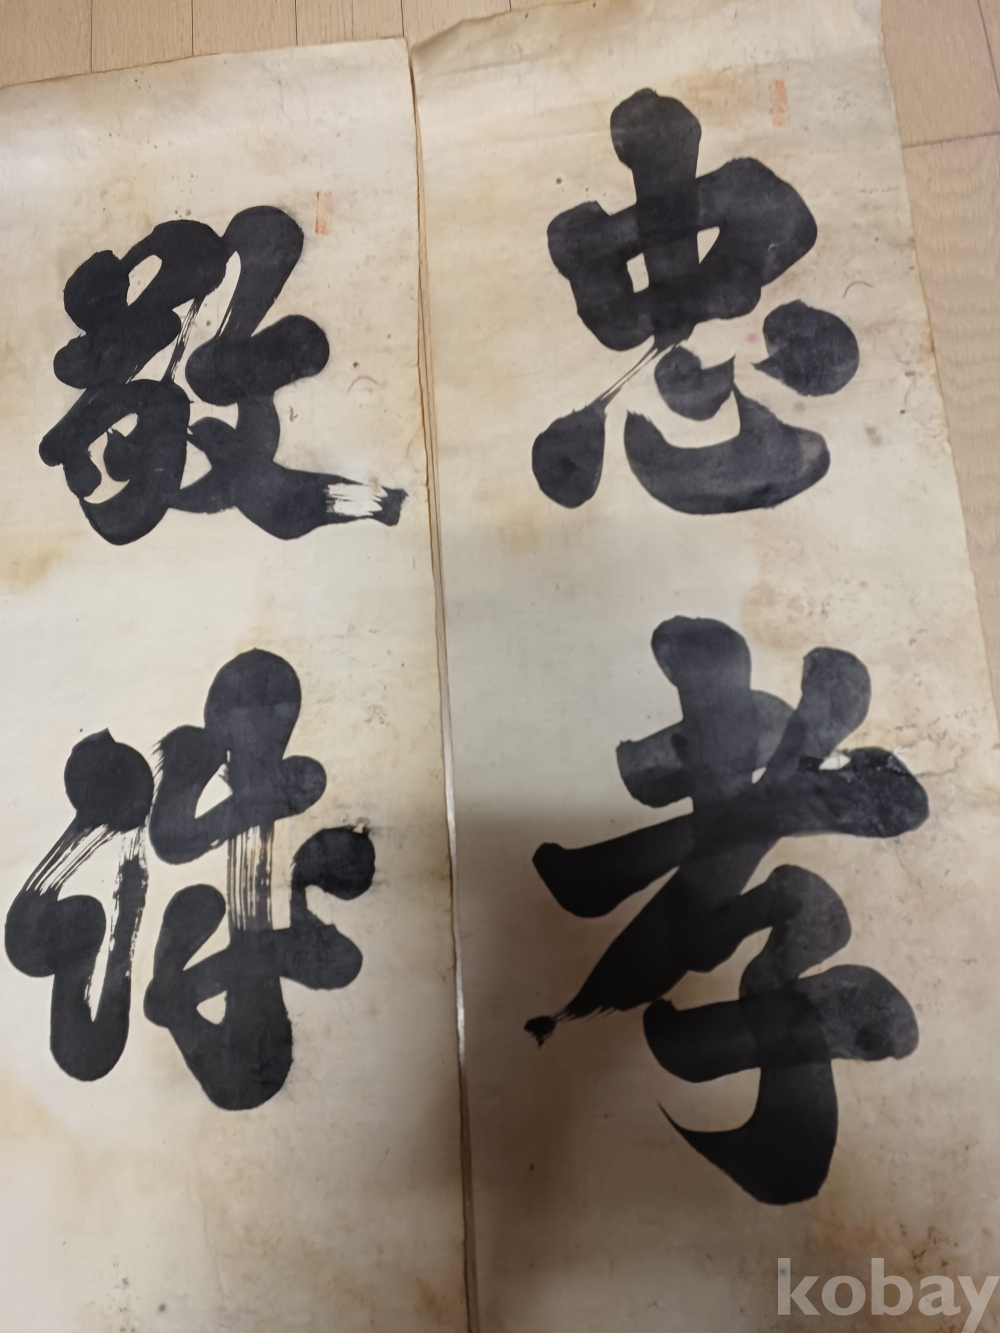 忠孝
敬
kobay